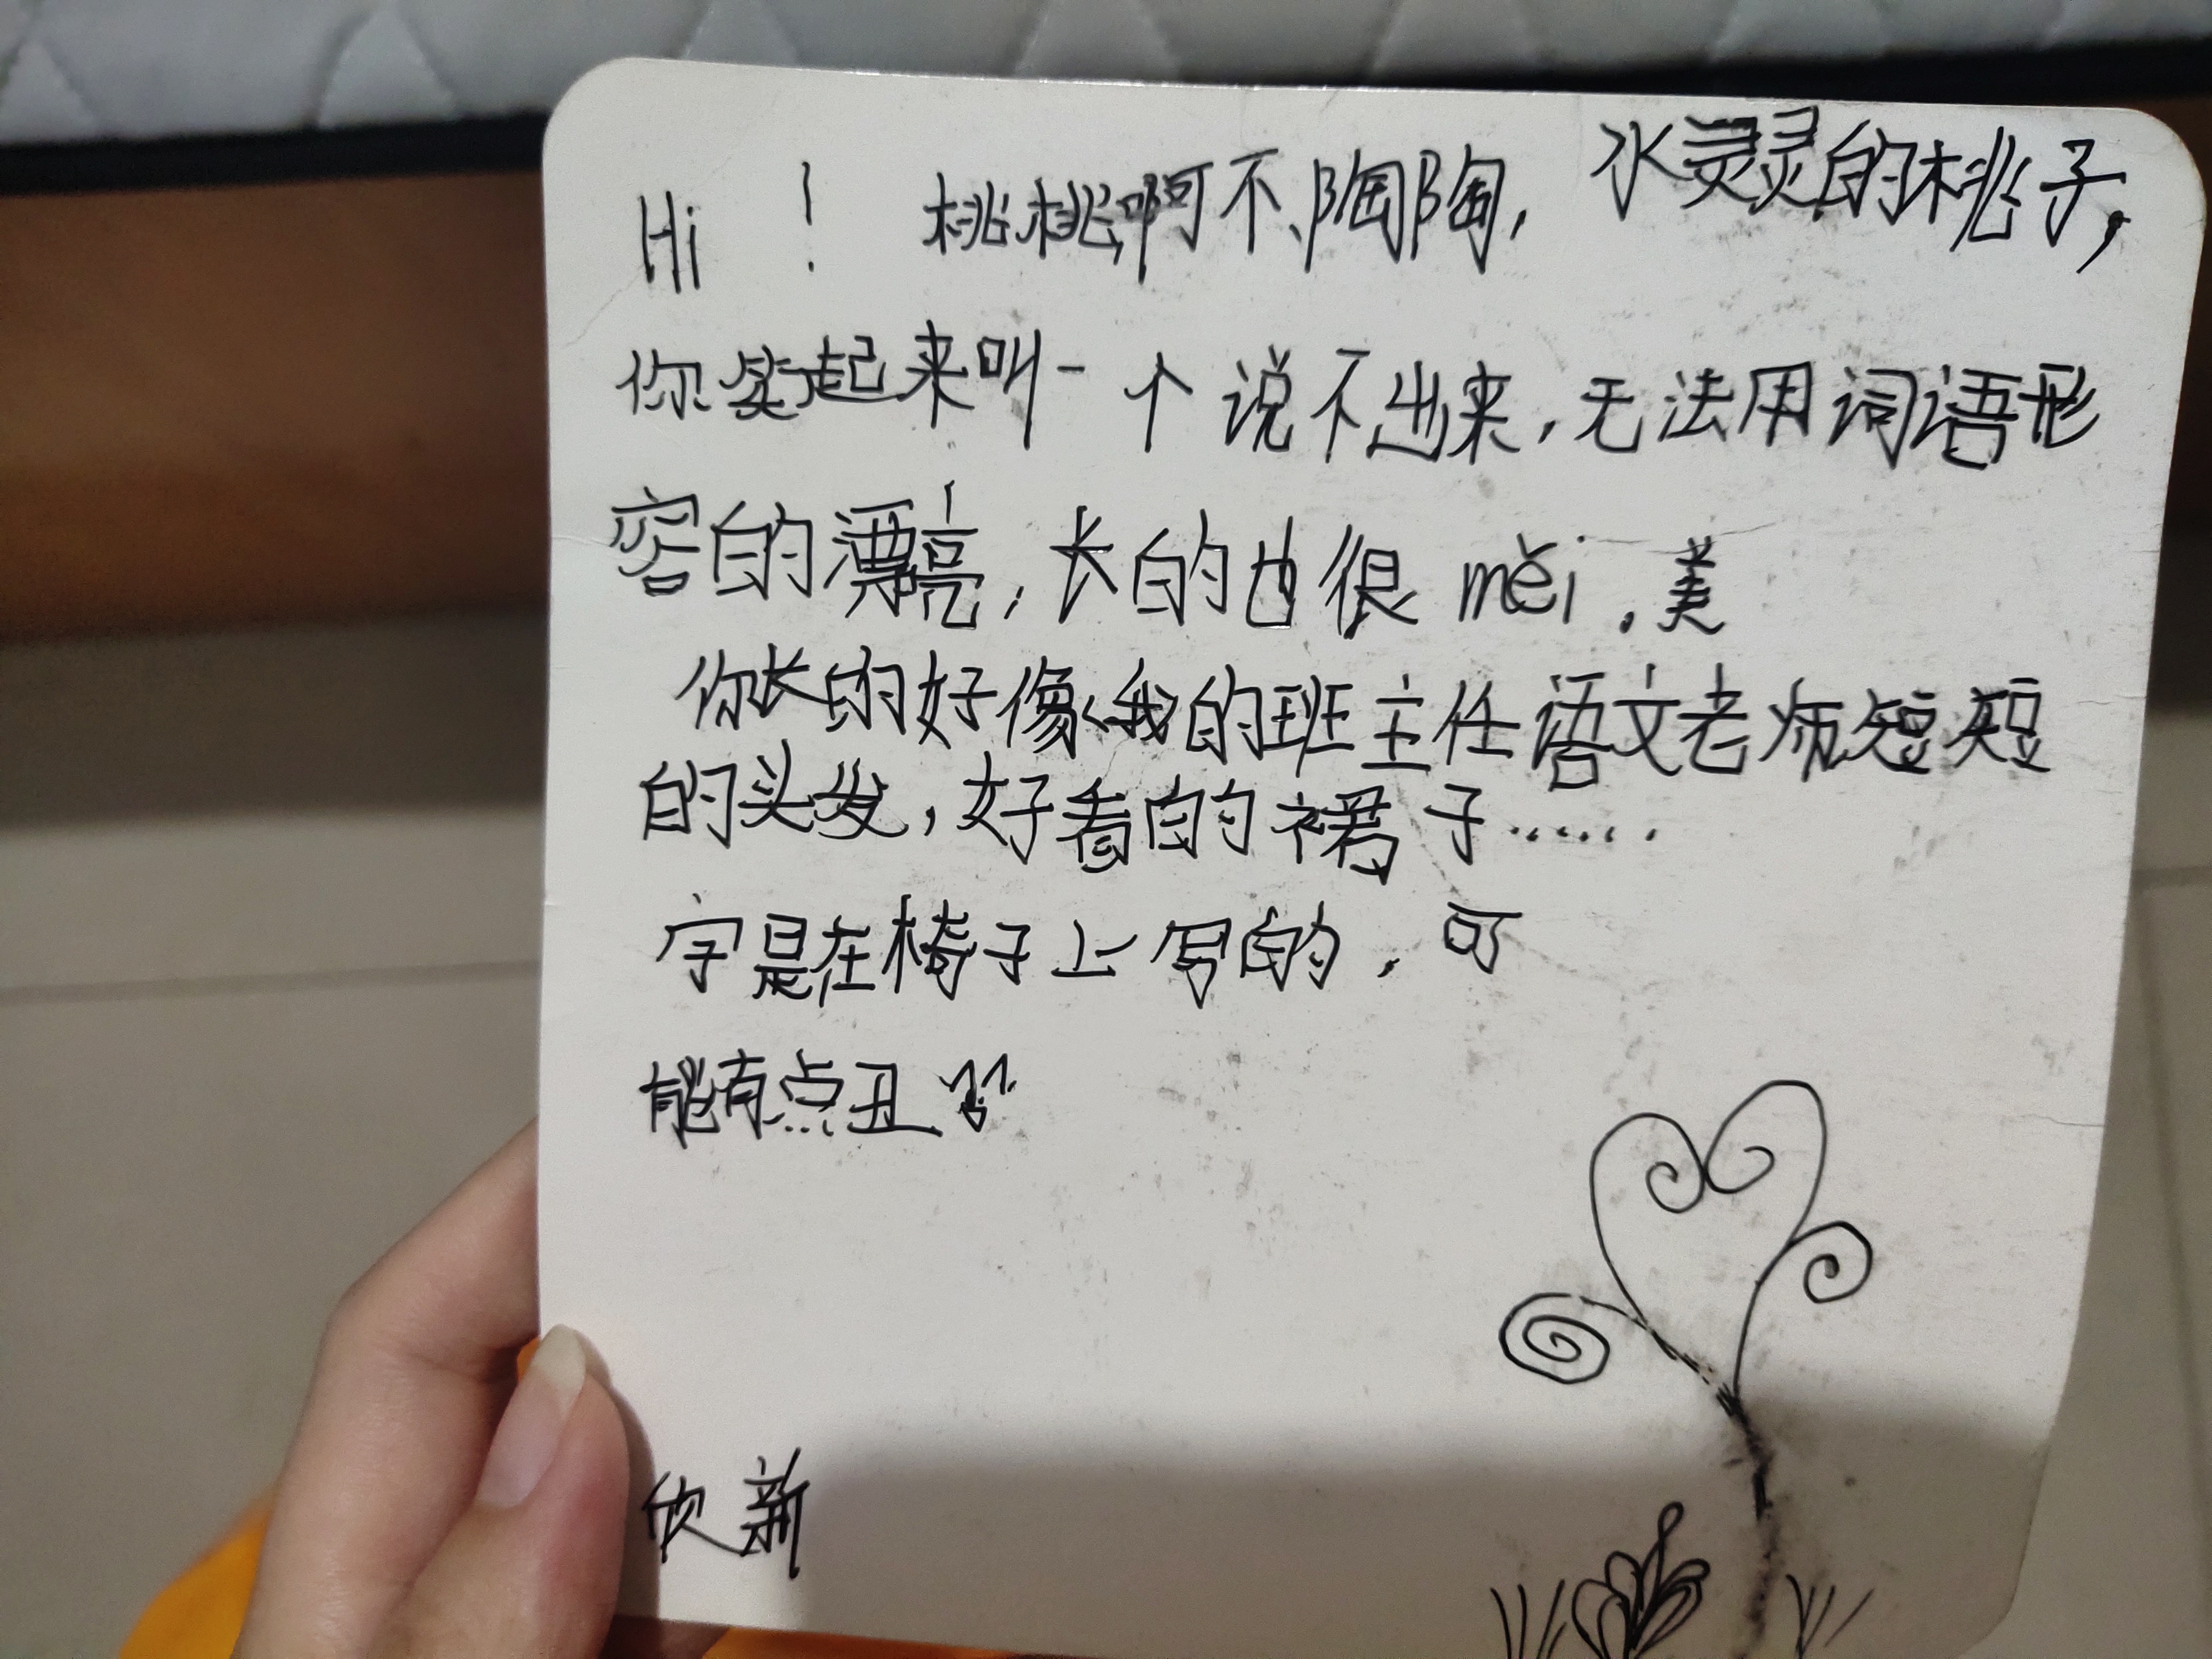 Hi ! 桃桃啊不、陶陶, 水灵灵的桃子,
你笑起来叫一个说不出来,无法用词语形
容的漂亮,长的也很měi.美
你长的好像我的班主任语文老师短短
的头发,好看的裙子……
字是在椅子上写的,可
能有点丑
欣新